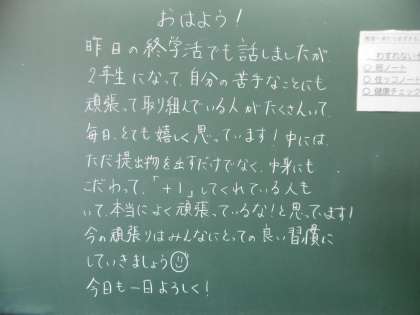 おはよう!
昨日の終学活でも話しましたが
2年生になって、自分の苦手なことにも
頑張って取り組んでいる人がたくさんいて、
毎日、とても嬉しく思っています!中には、
ただ提出物を出すだけでなく、中身にも
こだわって、「+1」してくれている人も
いて、本当によく頑張っているな!と思っています!
今の頑張りはみんなにとっての良い習慣に
していきましょう
今日も一日よろしく!
わすれない
○ 班ノート
健康チェック